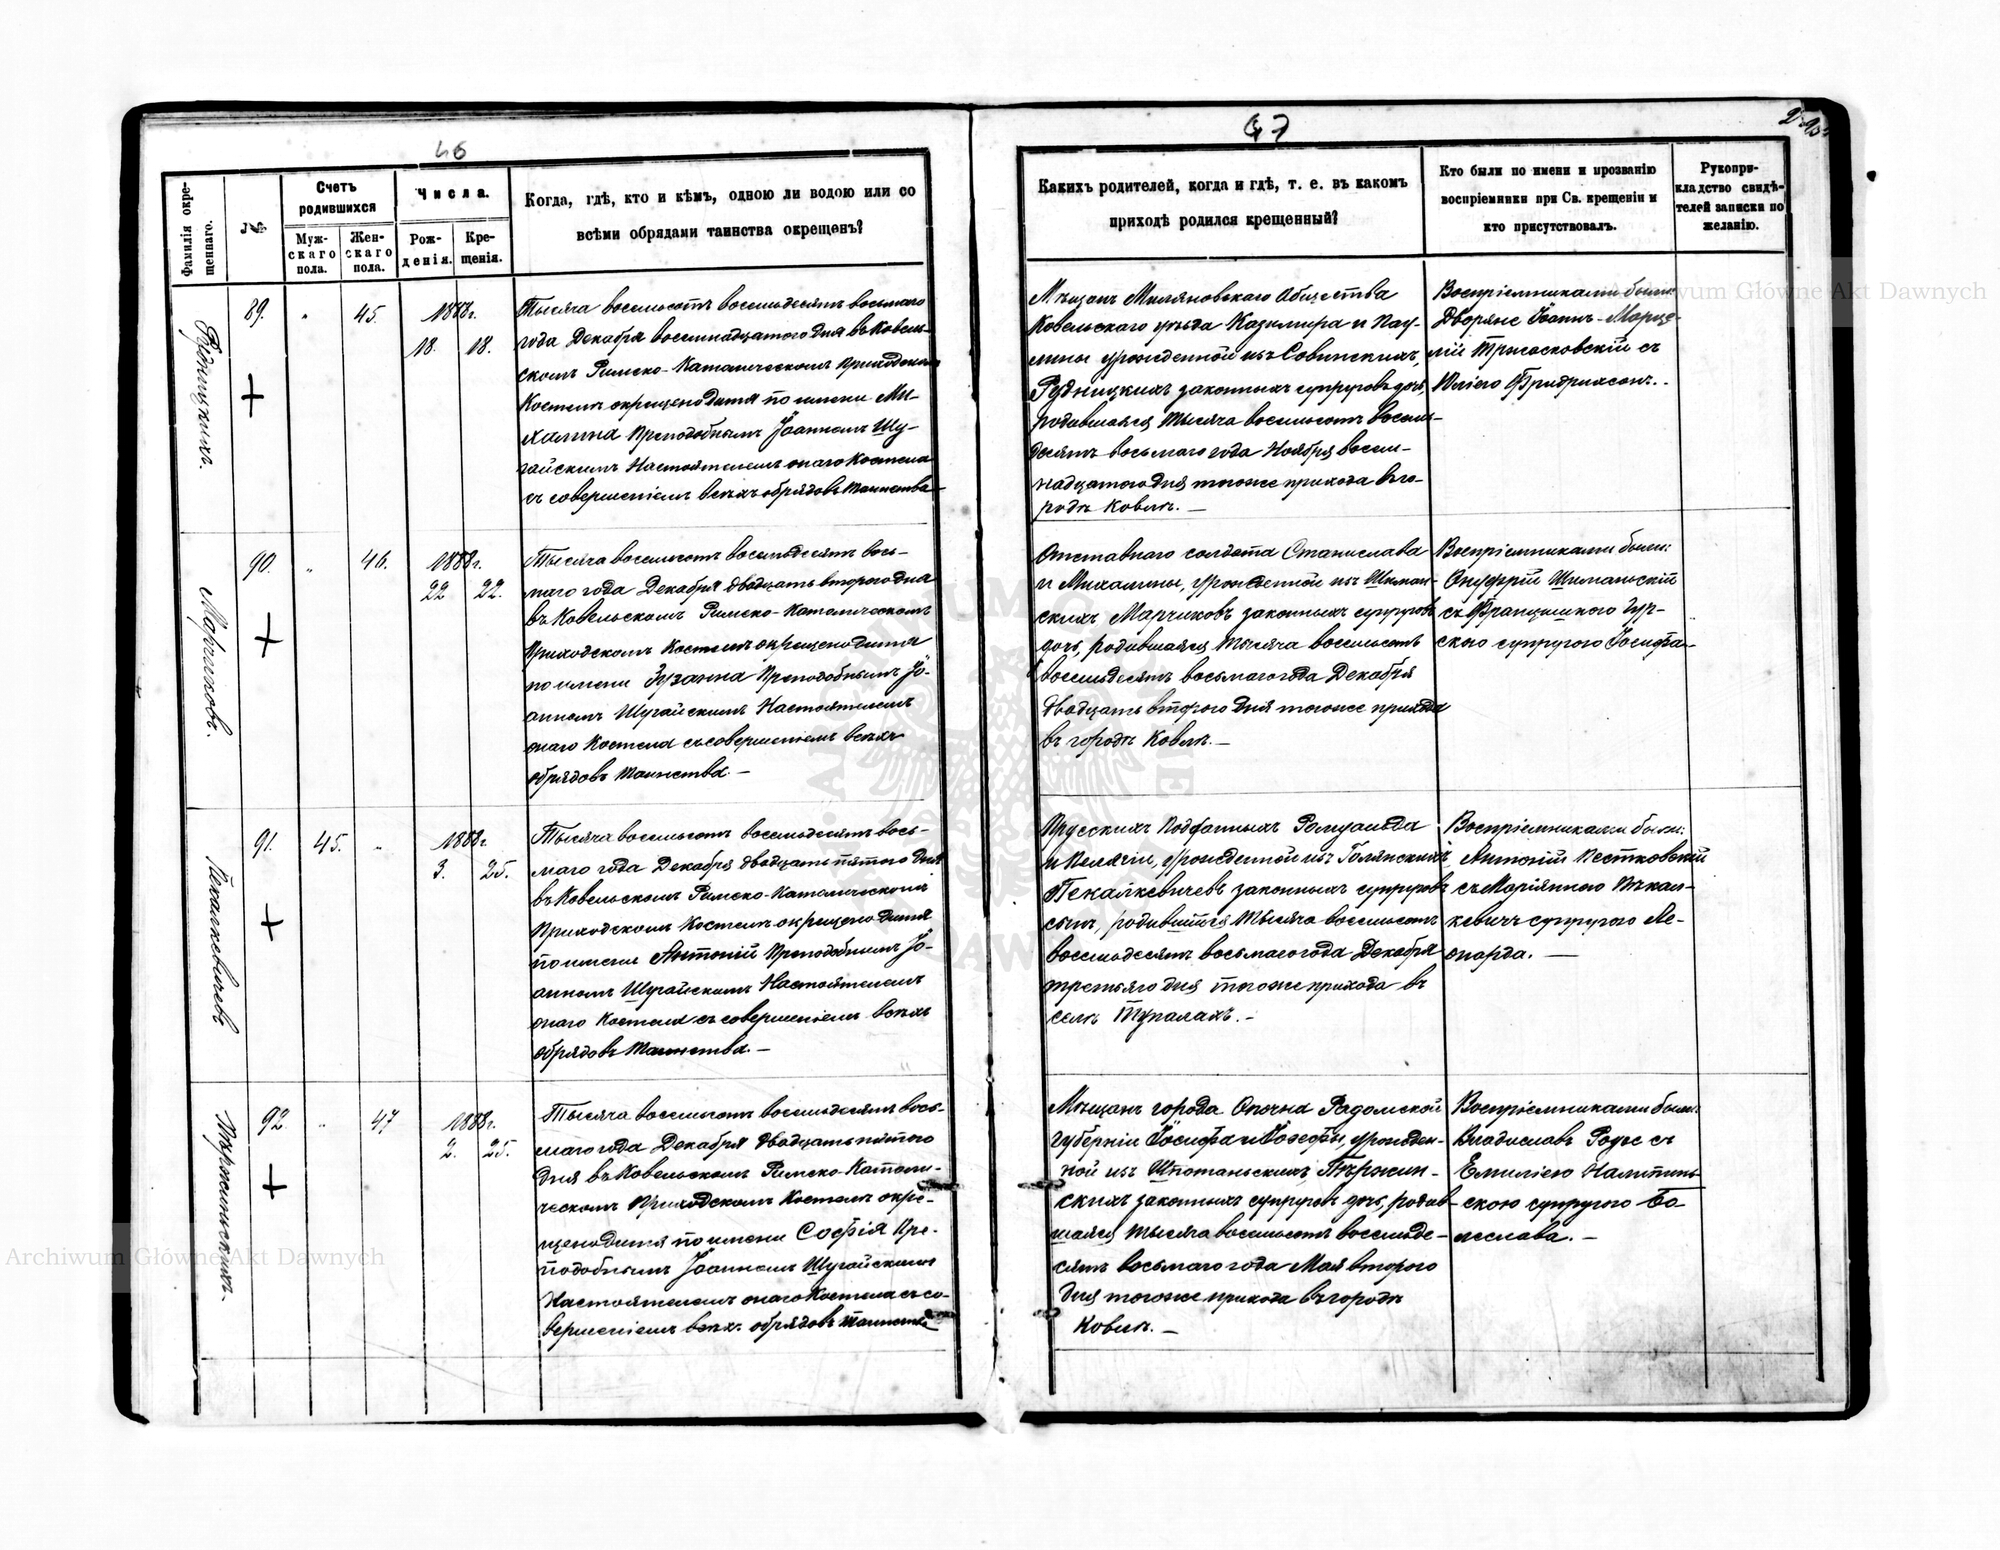 46
Фамилія окре-
щеннаго.
№
Счетъ
родившихся
Муж-
скаго
пола.
Жен-
скаго
пола.
Числа.
Рож-
денія.
Кре-
щенія.
Когда, гдѣ, кто и кѣмъ, одною ли водою или со
всѣми обрядами таинства окрещенъ?
Рудницкихъ.
89.
"
45.
1888г.
18.
18.
Тысяча восемьсотъ восемьдесятъ восьмаго
года Декабря восемнадцатого дня въ Ковель-
скомъ Римско-Католическомъ Приходскомъ
Костелѣ окрещено дитя по имени Ми-
халина Преподобнымъ Іоанномъ Шу-
гайскимъ Настоятелемъ онаго Костела
съ совершеніемъ всѣхъ обрядовъ таинства
Марчиковъ.
90.
"
46.
1888г.
22
22.
Тысяча восемьсотъ восемьдесятъ вось-
маго года Декабря двадцать второго дня
въ Ковельскомъ Римско-Католическомъ
Приходскомъ Костелѣ окрещено дитя
по имени Зузанна Преподобнымъ Іо-
анномъ Шугайскимъ Настоятелемъ
онаго Костела съ совершеніемъ всѣхъ
обрядовъ таинства. —
91.
45.
"
1888г
3.
25.
Тысяча восемьсотъ восемьдесятъ вось-
маго года Декабря двадцать пятого дня
въ Ковельскомъ Римско-Католическомъ
Приходскомъ Костелѣ окрещено дитя
по имени Антоній Преподобнымъ Іо-
анномъ Шугайскимъ Настоятелемъ
онаго Костела съ совершеніемъ всѣхъ
обрядовъ таинства. —
92.
"
47
1888г.
2.
25.
Тысяча восемьсотъ восемьдесятъ вось-
маго года Декабря двадцать пятого
дня въ Ковельскомъ Римско-Католи-
ческомъ Приходскомъ Костелѣ окре-
щено дитя по имени Софія Пре-
подобнымъ Іоанномъ Шугайскимъ
Настоятелемъ онаго Костела съ со-
вершеніемъ всѣхъ обрядовъ таинства
47
Какихъ родителей, когда и гдѣ, т. е. въ какомъ
приходѣ родился крещенный?
Кто были по имени и прозванію
воспріемники при Св. крещеніи и
кто присутствовалъ.
Рукопри-
кладство свидѣ-
телей записки по
желанію.
Мѣщанъ Миляновскаго Общества
Ковельскаго уѣзда Казимира и Пау-
лины урожденной изъ Совинскихъ,
Рудницкихъ законныхъ супруговъ дочь,
родившаяся тысяча восемьсотъ восемь-
десятъ восьмаго года Ноября восем-
надцатого дня того же прихода въ го-
родѣ Ковлѣ. —
Воспріемниками были:
Дворяне Іоаннъ-
съ
Юліею Фридрихсонъ.
Отставного солдата Станислава
и Михалины, урожденной изъ Шиман-
скихъ Марчиковъ законныхъ супруговъ
дочь, родившаяся тысяча восемьсотъ
восемьдесятъ восьмаго года Декабря
двадцать второго дня того же прихода
въ городѣ Ковлѣ. —
Воспріемниками были:
Онуфрій Шиманьскій
съ Францишкою Гур-
скою супругою Іосифа —
Прусскихъ Подданныхъ Ромуальда
и Пелагіи, урожденной изъ Голянскихъ
законныхъ супруговъ
сынъ, родившійся тысяча восемьсотъ
восемьдесятъ восьмаго года Декабря
третьяго дня того же прихода въ
селѣ Тупалахъ. —
Воспріемниками были:
Антоній Пестковскій
съ Маріянною
кевичъ супругою Ле-
онарда. —
Мѣщанъ города Опочна Радомской
губерніи Іосифа и Іозефы, урожден-
ной изъ Шпотаньскихъ,
скихъ законныхъ супруговъ дочь, родив-
шаяся тысяча восемьсотъ восемьде-
сятъ восьмаго года Мая второго
дня того же прихода въ городѣ
Ковлѣ. —
Воспріемниками были:
Владиславъ Родъ съ
Емиліею
скою супругою Бо-
леслава. —
Archiwum Główne Akt Dawnych
Archiwum Główne Akt Dawnych